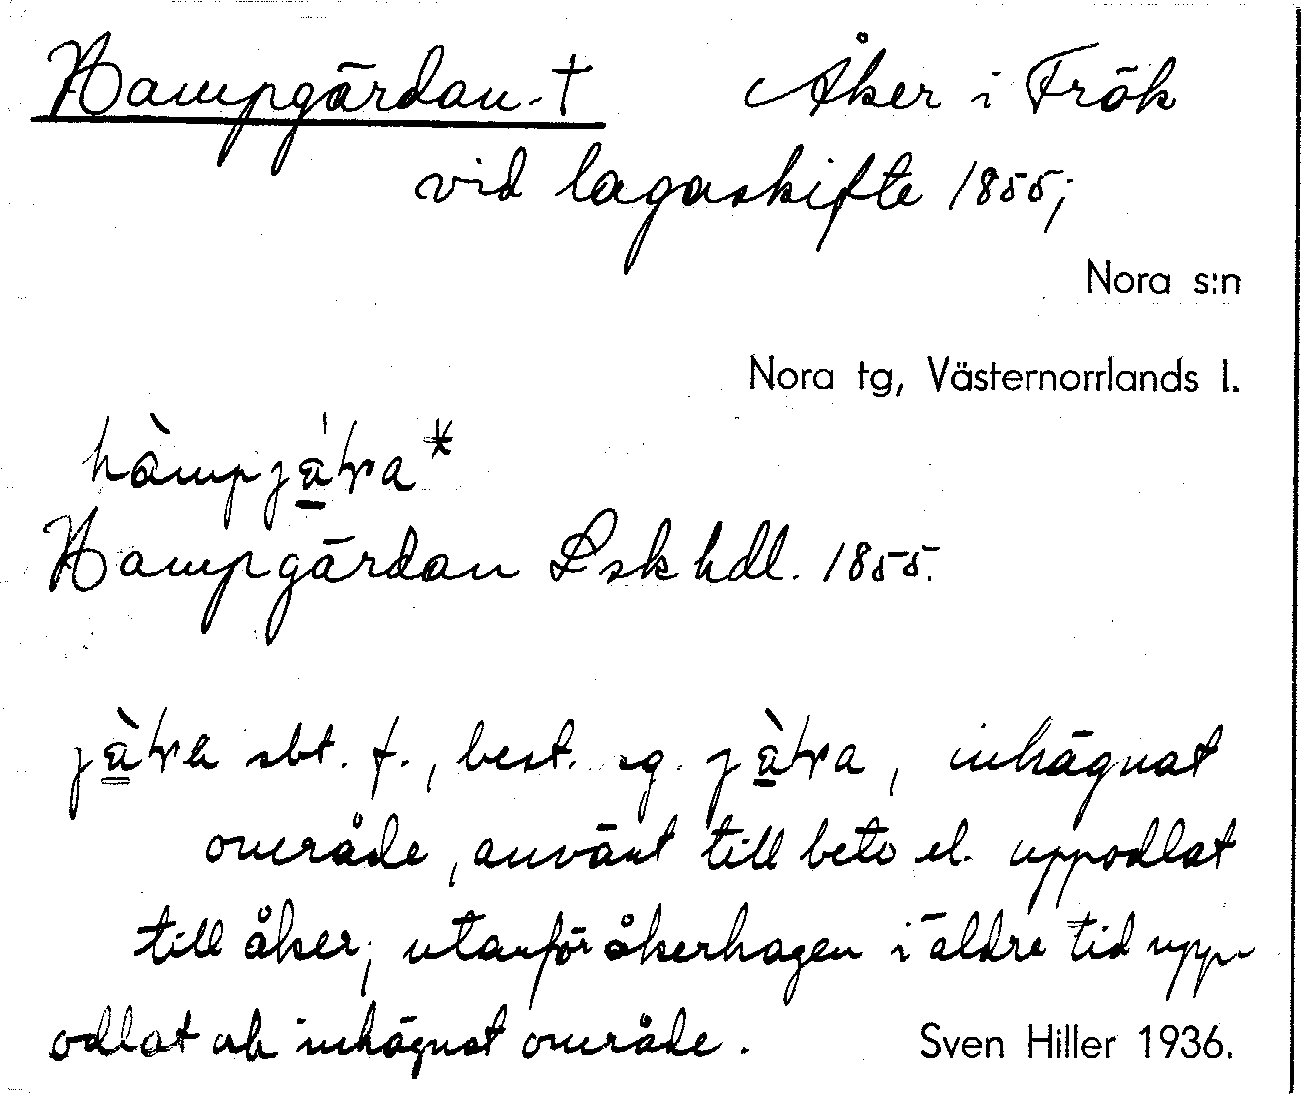 Hampgärdan † Åker i Frök
vid lagaskifte 1855;
Nora s:n
Nora tg, Västernorrlands l.
Hampgärdan Lsk hdl. 1855.
sbt. f., best. sg. , inhägnat
område, använt till bete el. uppodlat
till åker; utanför åkerhagen i äldre tid upp-
odlat och inhägnat område. Sven Hiller 1936.